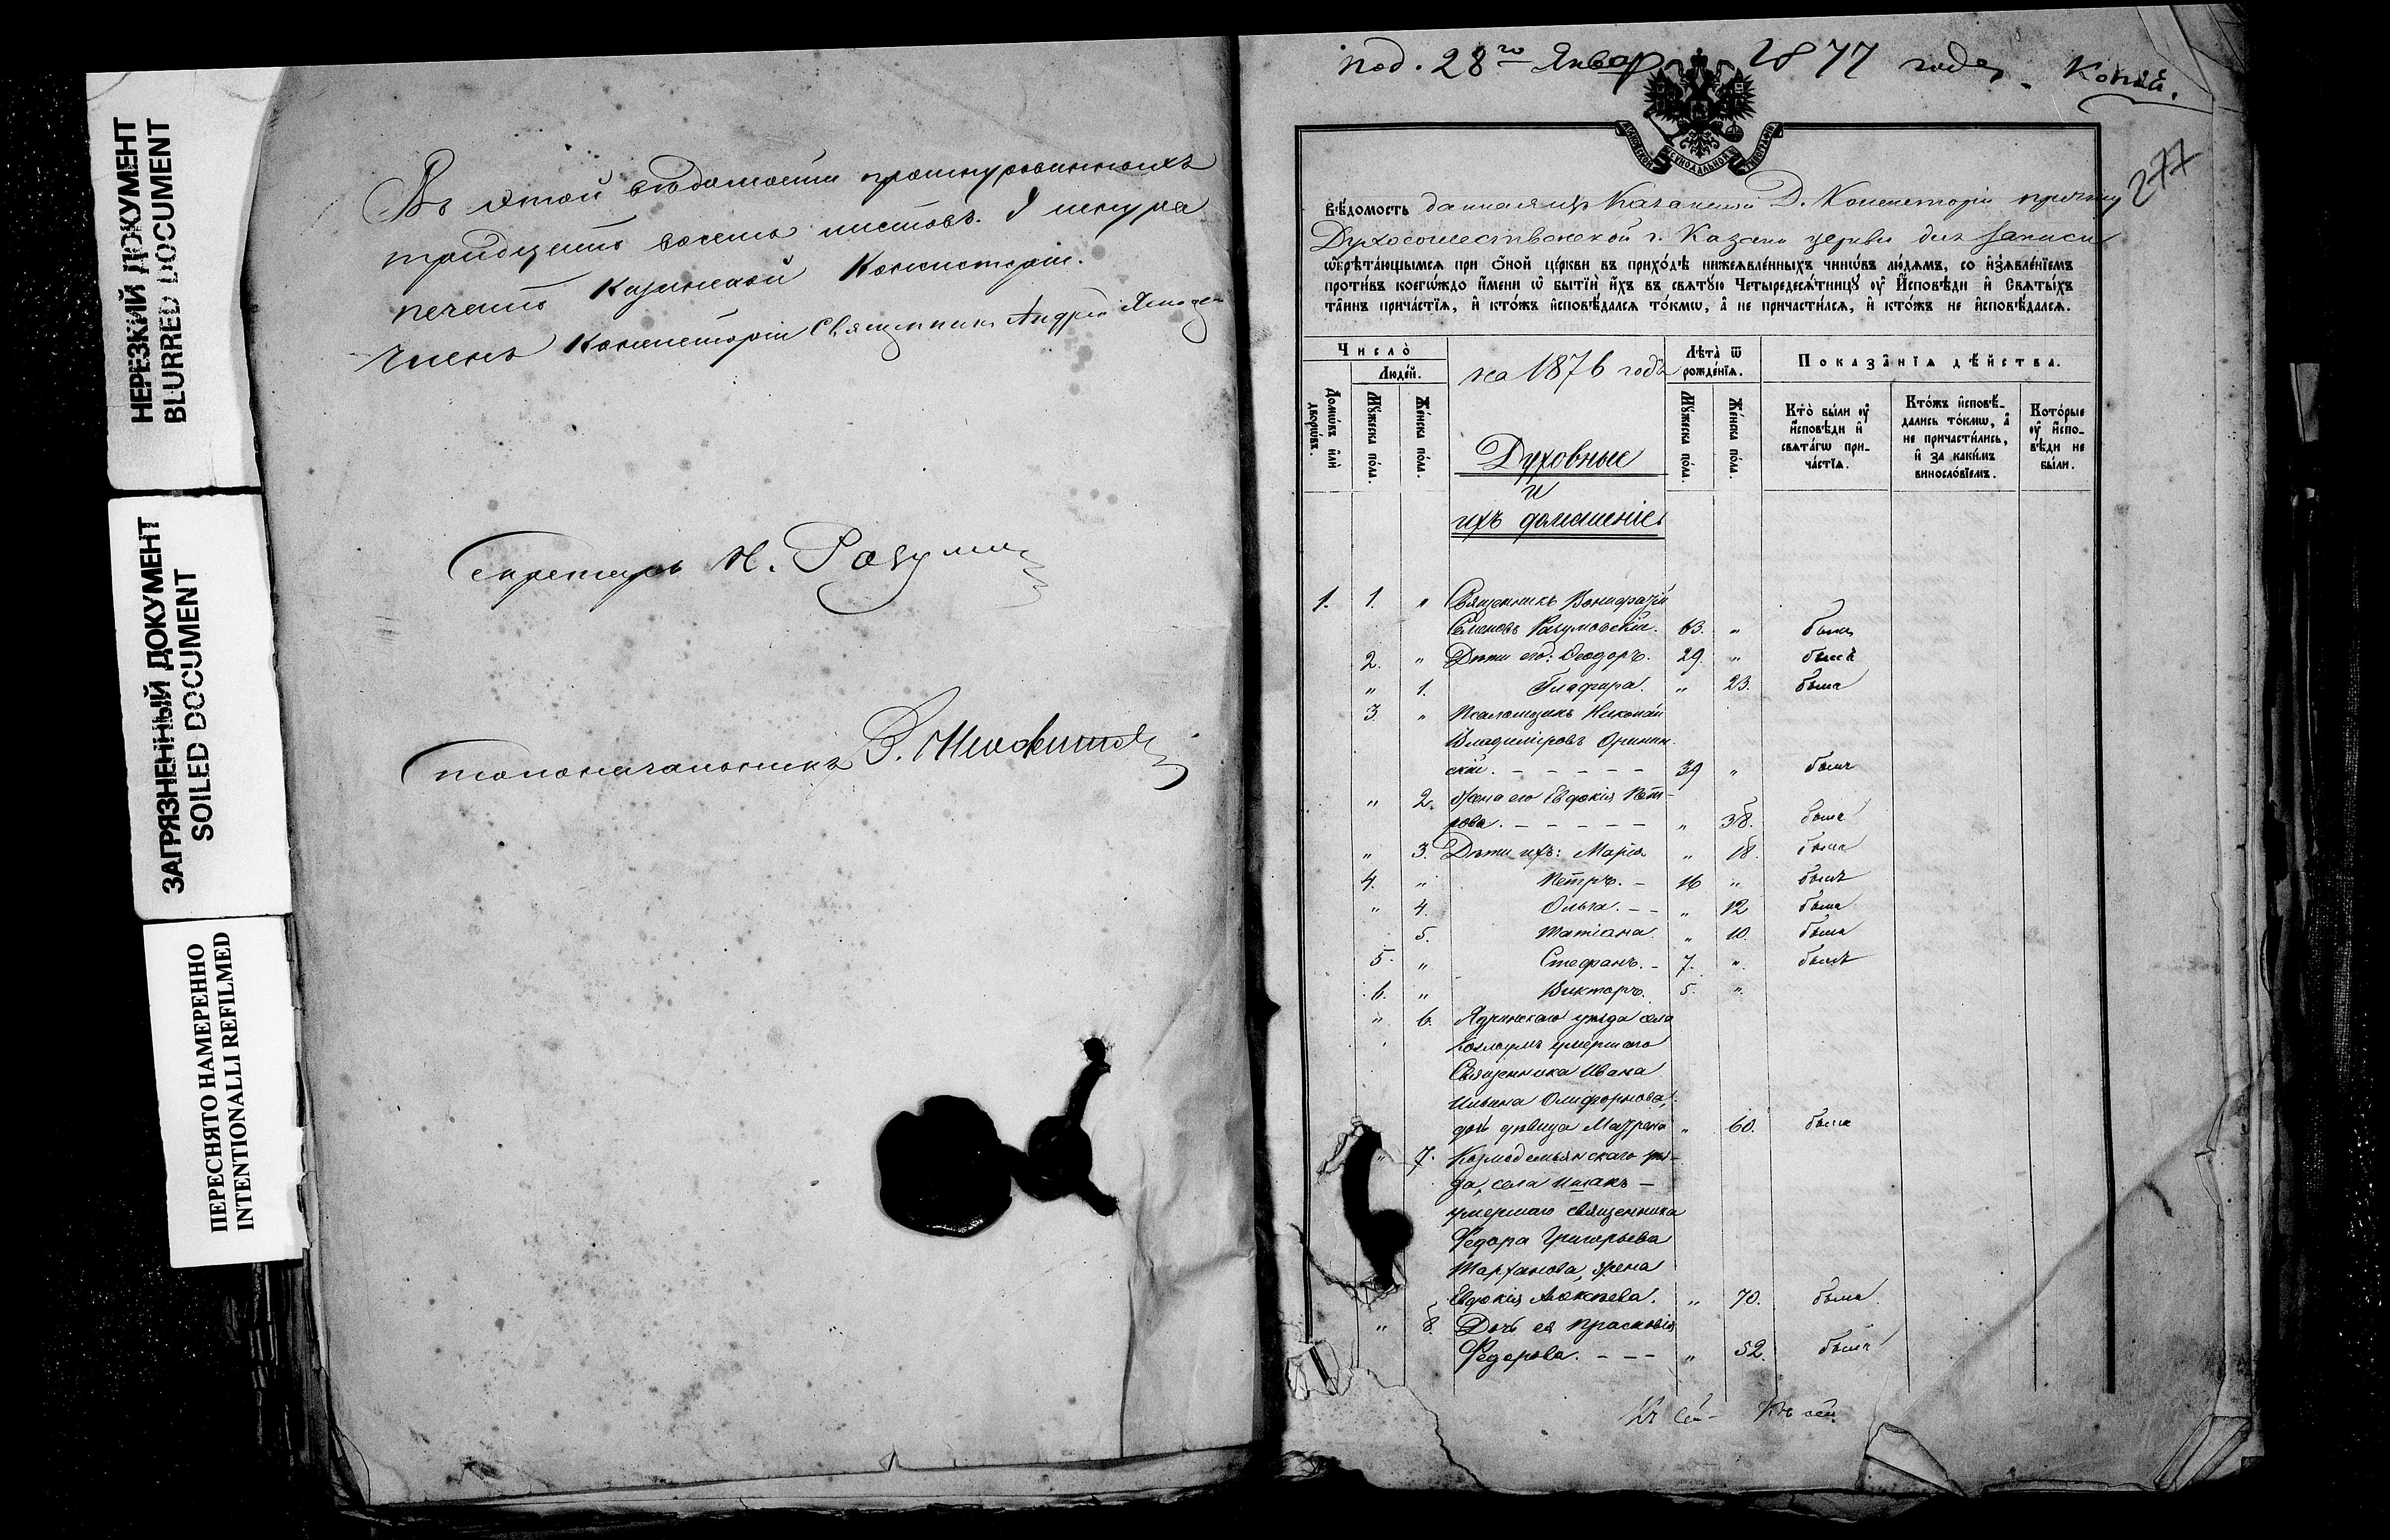 НЕРЕЗКИЙ ДОКУМЕНТ
BLURRED DOCUMENT
ЗАГРЯЗНЕННЫЙ ДОКУМЕНТ
SOILED DOCUMENT
ПЕРЕСНЯТО НАМЕРЕННО
INTENTIONALLI REFILMED
Въ этой вѣдомости прошнурованныхъ
тридцать восемь листовъ. У шнура
печать Казанской Консисторіи.
Членъ Консисторіи Священникъ Андрей
Секретарь Н.
Столоначальникъ
под. 28го Январ 1877 года. Копій.
277
МОСКОВСКОЙ СѴНОДАЛЬНОЙ ТИПОГРАФІИ
Вѣ́домость данная изъ Казанской Д. Консисторіи причту
Духосошественской г. Казани церкви для записи
ѡ҆брѣта́ющымсѧ при ѻ҆́ной це́ркви въ прихо́дѣ нижеꙗвле́нныхъ чинѡ́въ лю́демъ, со и҆з̾ѧвле́нїемъ
проти́въ коегѡ́ждо и҆́мени ѡ҆ бытїѝ и҆́хъ въ свѧту́ю Четыредесѧ́тницꙋ ᲂу҆ И҆сповѣ́ди и҆ Свѧты́хъ
та̑инъ прича́стїѧ, и҆ кто́жъ и҆сповѣ́далсѧ то́кмѡ, а҆ не причасти́лсѧ, и҆ кто́жъ не и҆сповѣ́далсѧ.
Число̀
Люде́й.
на 1876 годъ
Лѣ́та ѿ рожде́нїѧ.
Показа̑нїѧ дѣ́йства.
Домѡ́въ и҆лѝ дворѡ́въ.
Мꙋ́жеска по́ла.
Же́нска по́ла.
Мꙋ́жеска по́ла.
Же́нска по́ла.
Кто̀ бы́ли ᲂу҆ и҆сповѣ́ди и҆ свѧта́гѡ прича́стїѧ.
Кто́жъ и҆сповѣ́дались то́кмѡ, а҆ не причасти́лись, и҆ за каки́мъ виносло́вїемъ.
Кото́рые ᲂу҆ и҆сповѣ́ди не бы́ли.
Духовные
и
ихъ домашніе.
1. 1. " Священникъ Вонифатій
Семеновъ Разумовскій. 63. " былъ
2. " Дѣти его: Ѳеодоръ. 29. " былъ
" 1. Глафира. " 23. была
3. " Псаломщикъ Николай
Владиміровъ Оринин-
скій. - - - - - 39 " былъ
" 2. Жена его Евдокія Пет-
рова. - - - - - " 38. была
" 3. Дѣти ихъ: Марія " 18. была
4. " Петръ. - 16 " былъ
" 4. Ольга. - - " 12 была
5. Татіана. " 10. была
5. " Стефанъ. - 7. " былъ
6. " Викторъ. 5. "
" 6. Ядринскаго уѣзда села
умершаго
Священника Ивана
Ильина Олиферовова,
дочь дѣвица " 60. была
" 7. Козмодемьянскаго уѣз-
да, села Ишакъ -
умершаго священника
Ѳедора Григорьева
Тарханова, жена
Евдокія Алексѣева. " 70. была.
" 8. Дочь ея Прасковія
Ѳедорова. - - - " 52. была